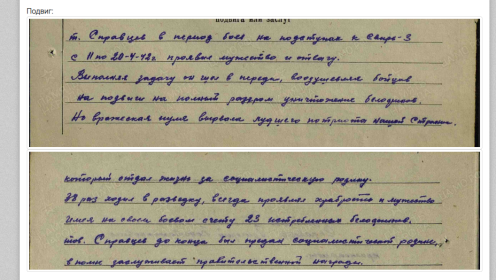 Подвиг:
подвига или заслуг
т. Справцев в период боев на подступах к Свирь-3
с 11 по 20-4-42г. проявил мужество и отвагу.
Выполняя задачу он шел в переди, воодушевляя бойцов
на подвиги на полный разгром уничтожение белофинов.
Но вражеская пуля вырвала лучшего патриота нашей Страны.
который отдал жизнь за социалистическую родину.
раз ходил в разведку, всегда проявлял храбрость и мужество
имея на своем боевом счету 23 истребленных белофинов.
тов. Справцев до конца был предан социалистической родине,
заслуживает правительственной награды.